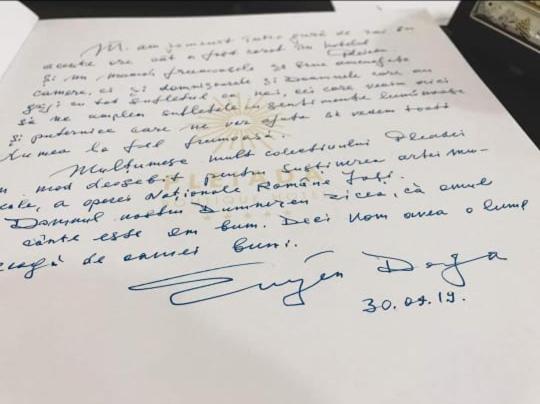 M. am pomenit într-o gură de rai în
aceste ore cât a fost cazat în hotelul
Pleiada.
și nu numai frumoasele și bine amenajate
camere, ci și domnișoarele și Doamnele care au
grijă cu tot sufletul ca noi, cei care venim aici
să ne umplem sufletele cu sentimente luminoase
și puternice care ne vor ajuta să vedem toată
lumea la fel frumoasă.
Mulțumesc mult colectivului Pleadei
în mod deosebit pentru susținerea artei mu-
cale, a operei Naționale Române Iași.
Domnul nostru Dumnezeu zicea, că omul
cânte este om bun. Deci vom avea o lume
reagă de oameni buni.
Eugen Doga
30.09.19.
PLEIADA
BOUTIQUE